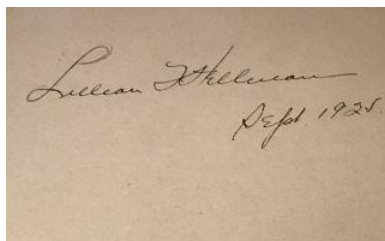 Lillian F Hellman
Sept. 1925.